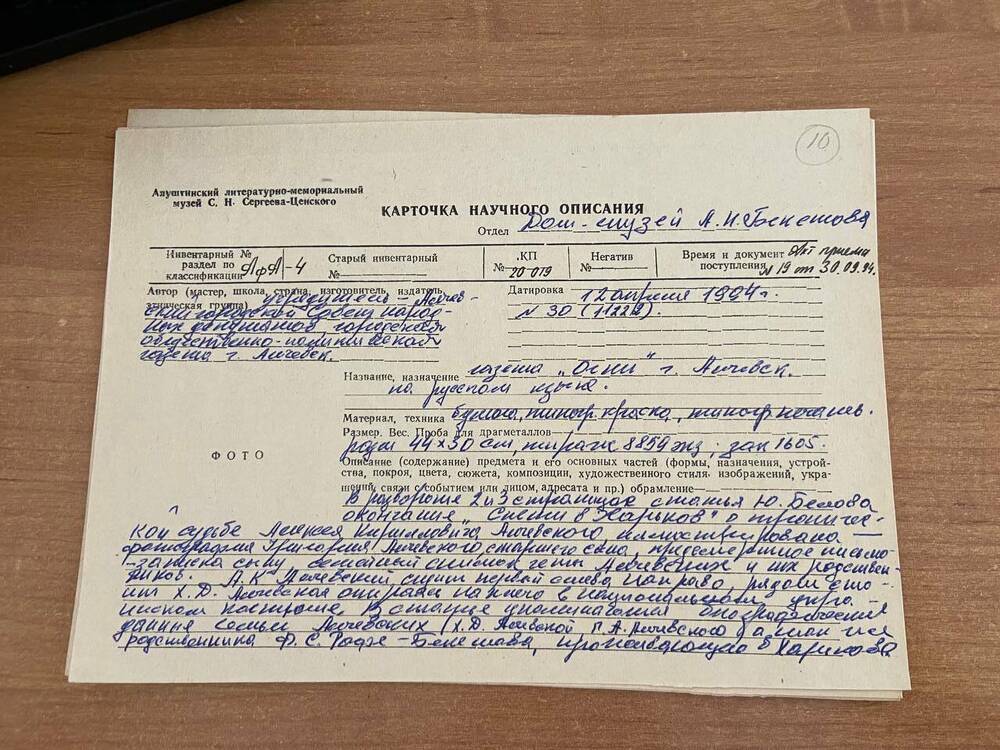 10
Алуштинский литературно-мемориальный
музей С. Н. Сергеева-Ценского
КАРТОЧКА НАУЧНОГО ОПИСАНИЯ
Отдел Дом-музей А.Н. Бекетова
Инвентарный №
раздел по
классификации АфА-4
Старый инвентарный
№
КП
№ 20 019
Негатив
№
Время и документ Акт приема
поступления № 19 от 30.09.94.
Автор (мастер, школа, страна, изготовитель, издатель,
этническая группа) учредитель - Алчев-
ский городской Совет народ-
ных депутатов, городская
общественно-политической
газеты г. Алчевск.
Датировка 12 апреля 1994 г.
№ 30 (11222).
Название, назначение газета "Огни" г. Алчевск.
на русском языке.
Материал, техника бумага, типогр. краска, типогр. печать.
Размер. Вес. Проба для драгметаллов
разм 44х30 см, тираж 8859 экз; зак 1605.
ФОТО
Описание (содержание) предмета и его основных частей (формы, назначения, устрой-
ства, покроя, цвета, сюжета, композиции, художественного стиля, изображений, укра-
шений, связи с событием или лицом, адресата и пр.) обрамление
В развороте 2 и 3 страницах статья Ю. Белова
окончание "Спети в Харьков" о трагичес-
кой судьбе Алексея Кирилловича Алчевского, иллюстрирована
фотографиями Григория Алчевского, старшего сына, предсмертное письмо-
записка сыну, семейный снимок четы Алчевских и их родствен-
ников. А. К. Алчевский, сидит первый слева направо, рядом сто-
ит Х.Д. Алчевская опираясь на него в национальном укра-
инском костюме. В статье упоминаются биографические
данные семьи Алчевских (Х.Д. Алчевской Г.А. Алчевского а также
родственника Ф. С. Рофе-Бекетова, проживающего в Харькове.